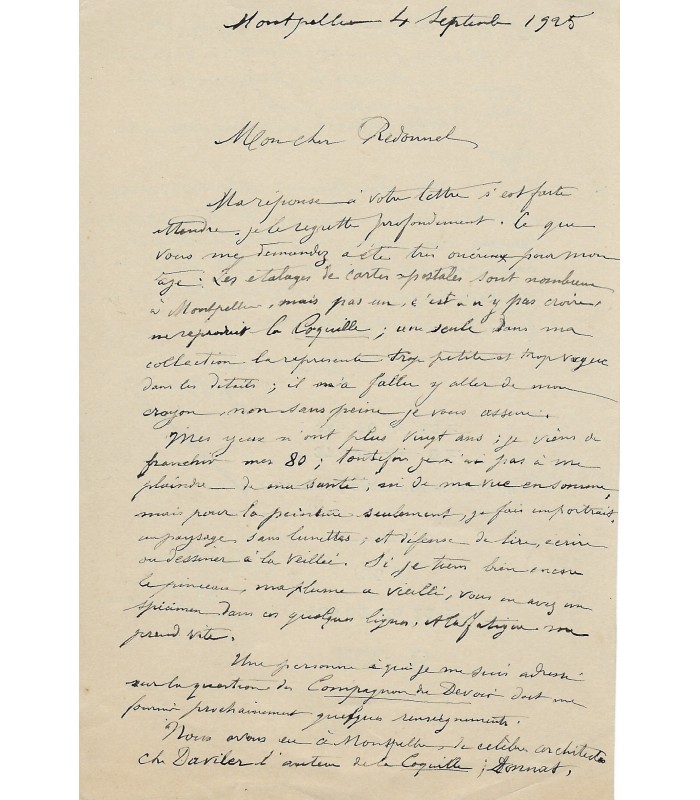 Montpellier 4 Septembre 1925
Mon cher Redonnel
Ma réponse à votre lettre s'est faite
attendre, je le regrette profondément. Ce que
vous me demandez a été très onéreux pour mon
âge. Les etalages de cartes-postales sont nombreux
à Montpellier, mais pas un, c'est à n'y pas croire,
ne reproduit la Coquille ; une seule dans ma
collection la représente trop petite et trop vague
dans les détails ; il m'a fallu y aller de mon
crayon, non sans peine je vous assure.
Mes yeux n'ont plus vingt ans ; je viens de
franchir mes 80 ; toutefois je n'ai pas à me
plaindre de ma santé, ni de ma vue en somme,
mais pour la peinture seulement, je fais un portrait,
un paysage sans lunettes ; et défense de lire, ecrire
ou dessiner à la veillée. Si je tiens bien encore
le pinceau, ma plume a vieilli, vous en avez un
spécimen dans ces quelques lignes, et la fatigue me
prend vite.
Une personne à qui je me suis adressé
sur la question du Compagnon du Devoir doit me
fournir prochainement quelques renseignements.
Nous avons eu à Montpellier de célèbres architectes
Ch. Daviler l'auteur de la Coquille ; Donnat,